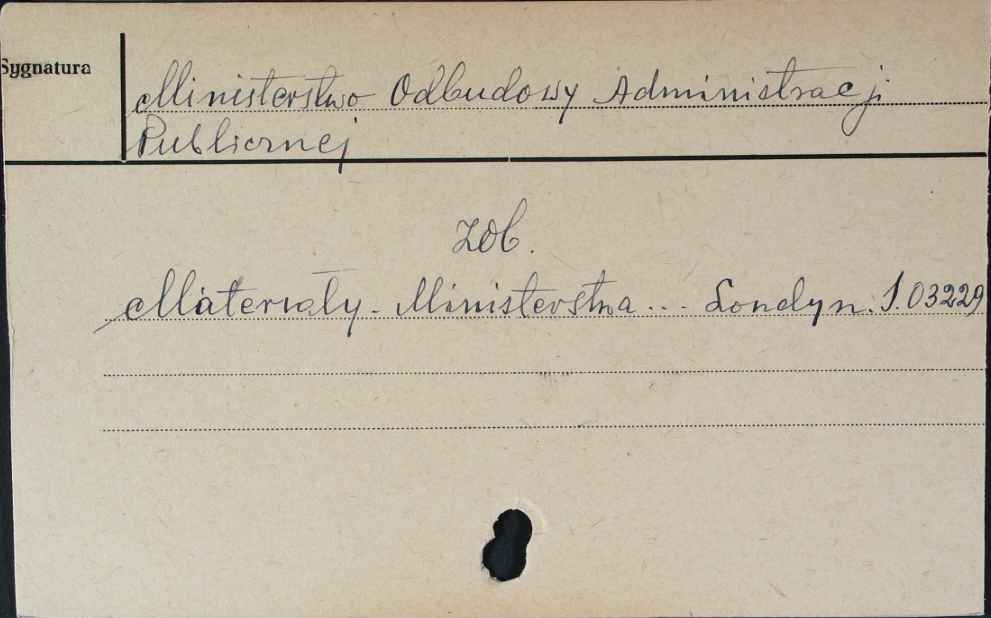 Sygnatura
Ministerstwo Odbudowy Administracji
Publicznej
zob.
Materiały. Ministerstwa... Londyn. S.03229